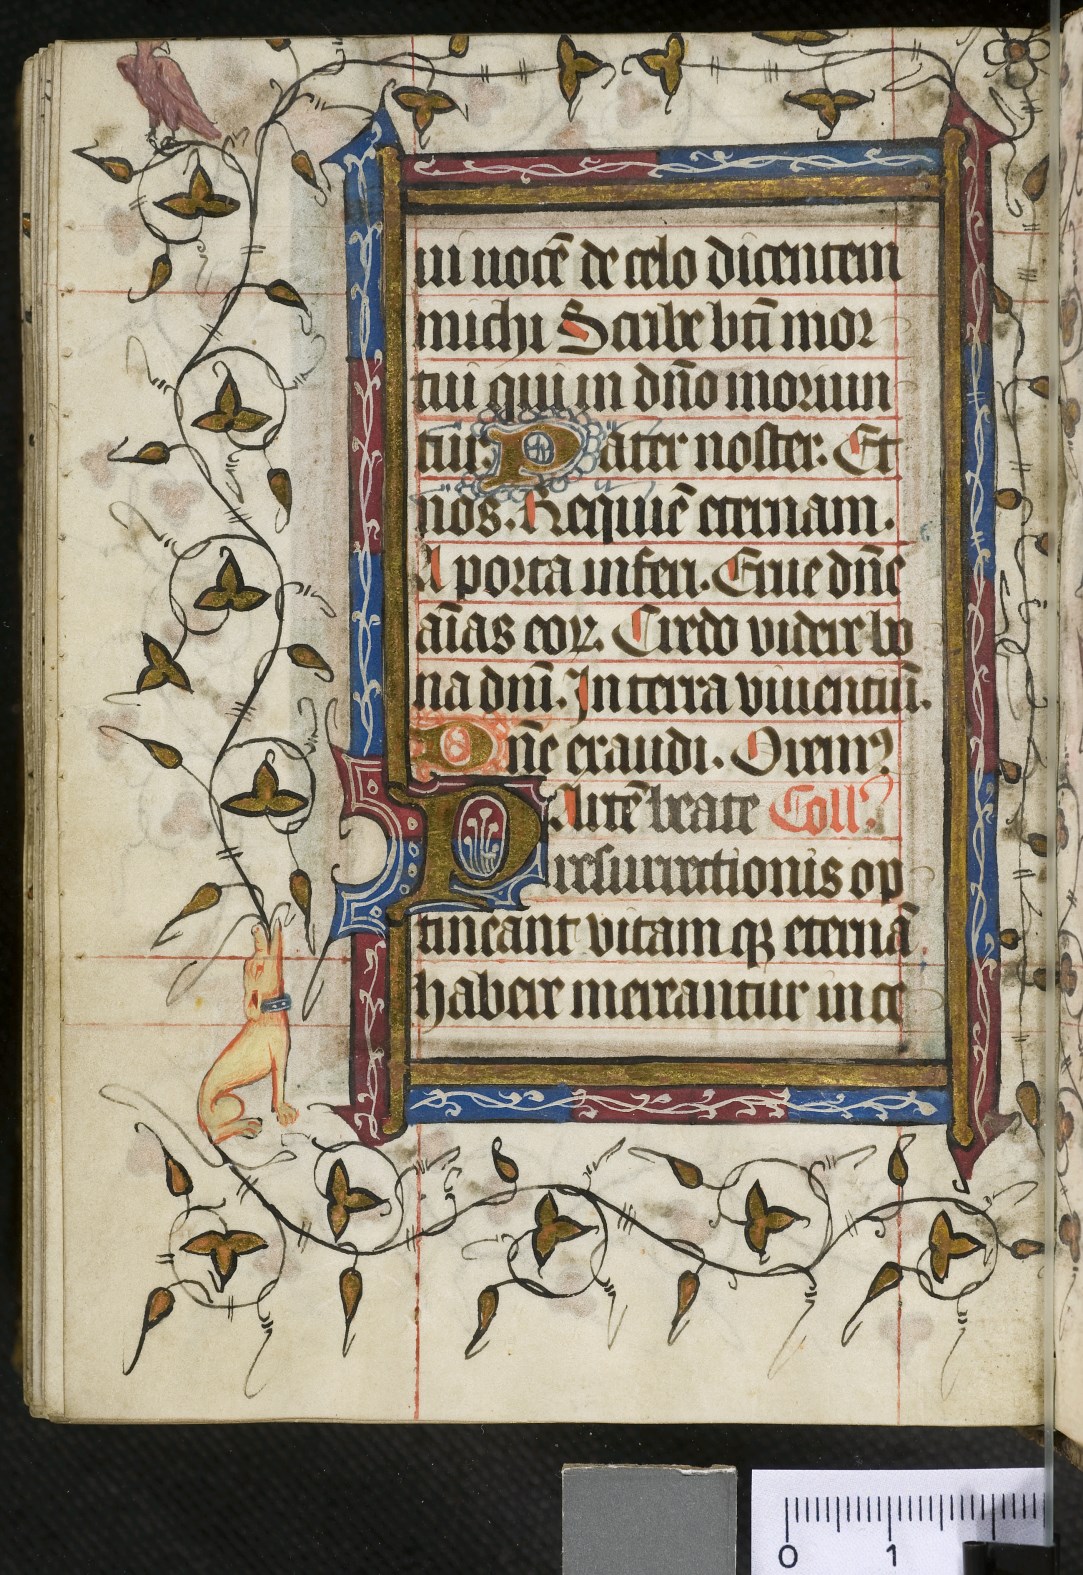 ui uocē de celo dicentem
michi Scribe bt̄i mor
tui qui in dn̄o moriun
tur. Pater noster. Et
nos. Requiē eternam.
A porta inferi. Erue dn̄e
aīas eoꝝ. Credo videre bo
na dnī. In terra viuentiū.
Dn̄e exaudi. Oremꝰ
Partē beate Coll.
resurrectionis op
tineant vitam qꝫ eternā
habere mereantur in ce
0 1